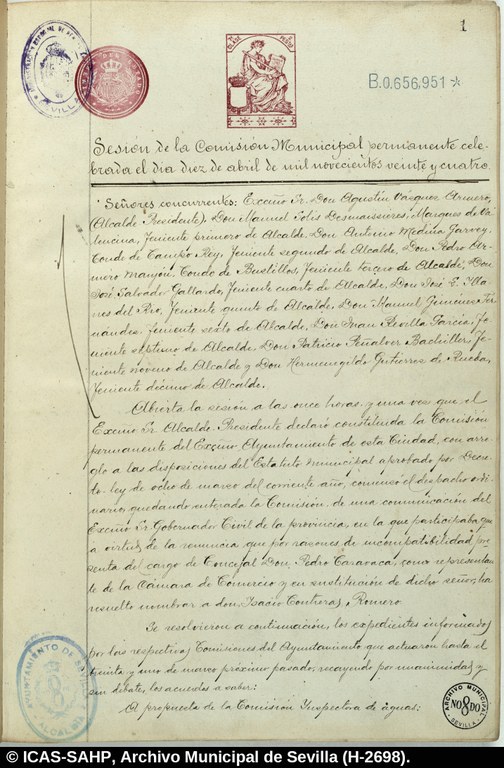 1
B.0,656,951 *
Sesión de la Comisión Municipal permanente cele-
brada el día diez de abril de mil novecientos veinte y cuatro.
Señores concurrentes: Excmo Sr. Don Agustín Vázquez Armero,
(Alcalde Presidente). Don Manuel Solís Desmaissieres, Marques de Va-
lencina, Teniente primero de Alcalde. Don Antonio Medina Garvey,
Conde de Campo Rey, Teniente segundo de Alcalde, Don Pedro Ar-
mero Manjón, Conde de Bustillos, Teniente tercero de Alcalde, Don
José Salvador Gallardo, Teniente cuarto de Alcalde, Don José E. Illa-
nes del Rio, Teniente quinto de Alcalde, Don Manuel Jimenez Fer-
nández, Teniente sexto de Alcalde, Don Juan Revilla García, Te-
niente séptimo de Alcalde, Don Patricio Peñalver Bachiller, Te-
niente noveno de Alcalde y Don Hermenegildo Gutierrez de Rueda,
Teniente décimo de Alcalde.
Abierta la sesión a las once horas y una vez que el
Excmo Sr. Alcalde Presidente declaró constituida la Comisión
permanente del Excmo Ayuntamiento de esta Ciudad, con arre-
glo a las disposiciones del Estatuto municipal aprobado por Decre-
to-ley de ocho de marzo del corriente año, comenzó el despacho ordi-
nario, quedando enterada la Comisión de una comunicación del
Excmo Sr. Gobernador Civil de la provincia, en la que participaba que
a virtud de la renuncia que por razones de incompatibilidad pre-
senta del cargo de Concejal Don Pedro Caravaca, como representan-
te de la Cámara de Comercio y en sustitución de dicho señor, ha
resuelto nombrar a don Isacio Contreras Romero.
Se resolvieron a continuación, los expedientes informados
por las respectivas Comisiones del Ayuntamiento que actuaron hasta el
treinta y uno de marzo próximo pasado, recayendo por unanimidad y
sin debate, los acuerdos a saber:
A propuesta de la Comisión Inspectora de aguas:
AYUNTAMIENTO DE SEVILLA
ALCALDIA
ARCHIVO MUNICIPAL
NO8DO
SEVILLA
© ICAS-SAHP, Archivo Municipal de Sevilla (H-2698).